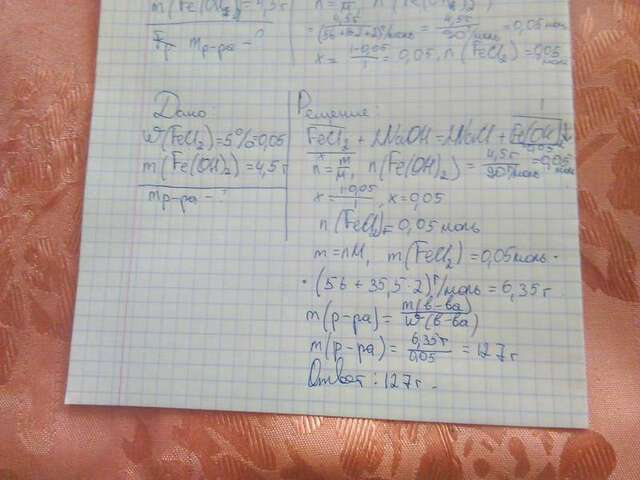 m(Fe(OH)₂)=4,5г
mр-ра - ?
= 4,5г/(56+(16+1)·2)г/моль = 4,5г/90г/моль = 0,05 моль
x = 1·0,05/1 = 0,05, n(FeCl₂) = 0,05 моль
Дано:
W(FeCl₂)=5%=0,05
m(Fe(OH)₂)=4,5г
mр-ра - ?
Решение:
FeCl₂ + 2NaOH = 2NaCl + Fe(OH)₂
x 0,05
n = m/M, n(Fe(OH)₂) = 4,5г/90г/моль = 0,05 моль
x = 1·0,05/1, x = 0,05
n(FeCl₂) = 0,05 моль
m = nM, m(FeCl₂) = 0,05 моль ·
· (56 + 35,5·2)г/моль = 6,35г
m(р-ра) = m(в-ва)/W(в-ва)
m(р-ра) = 6,35г/0,05 = 127г
Ответ: 127г.